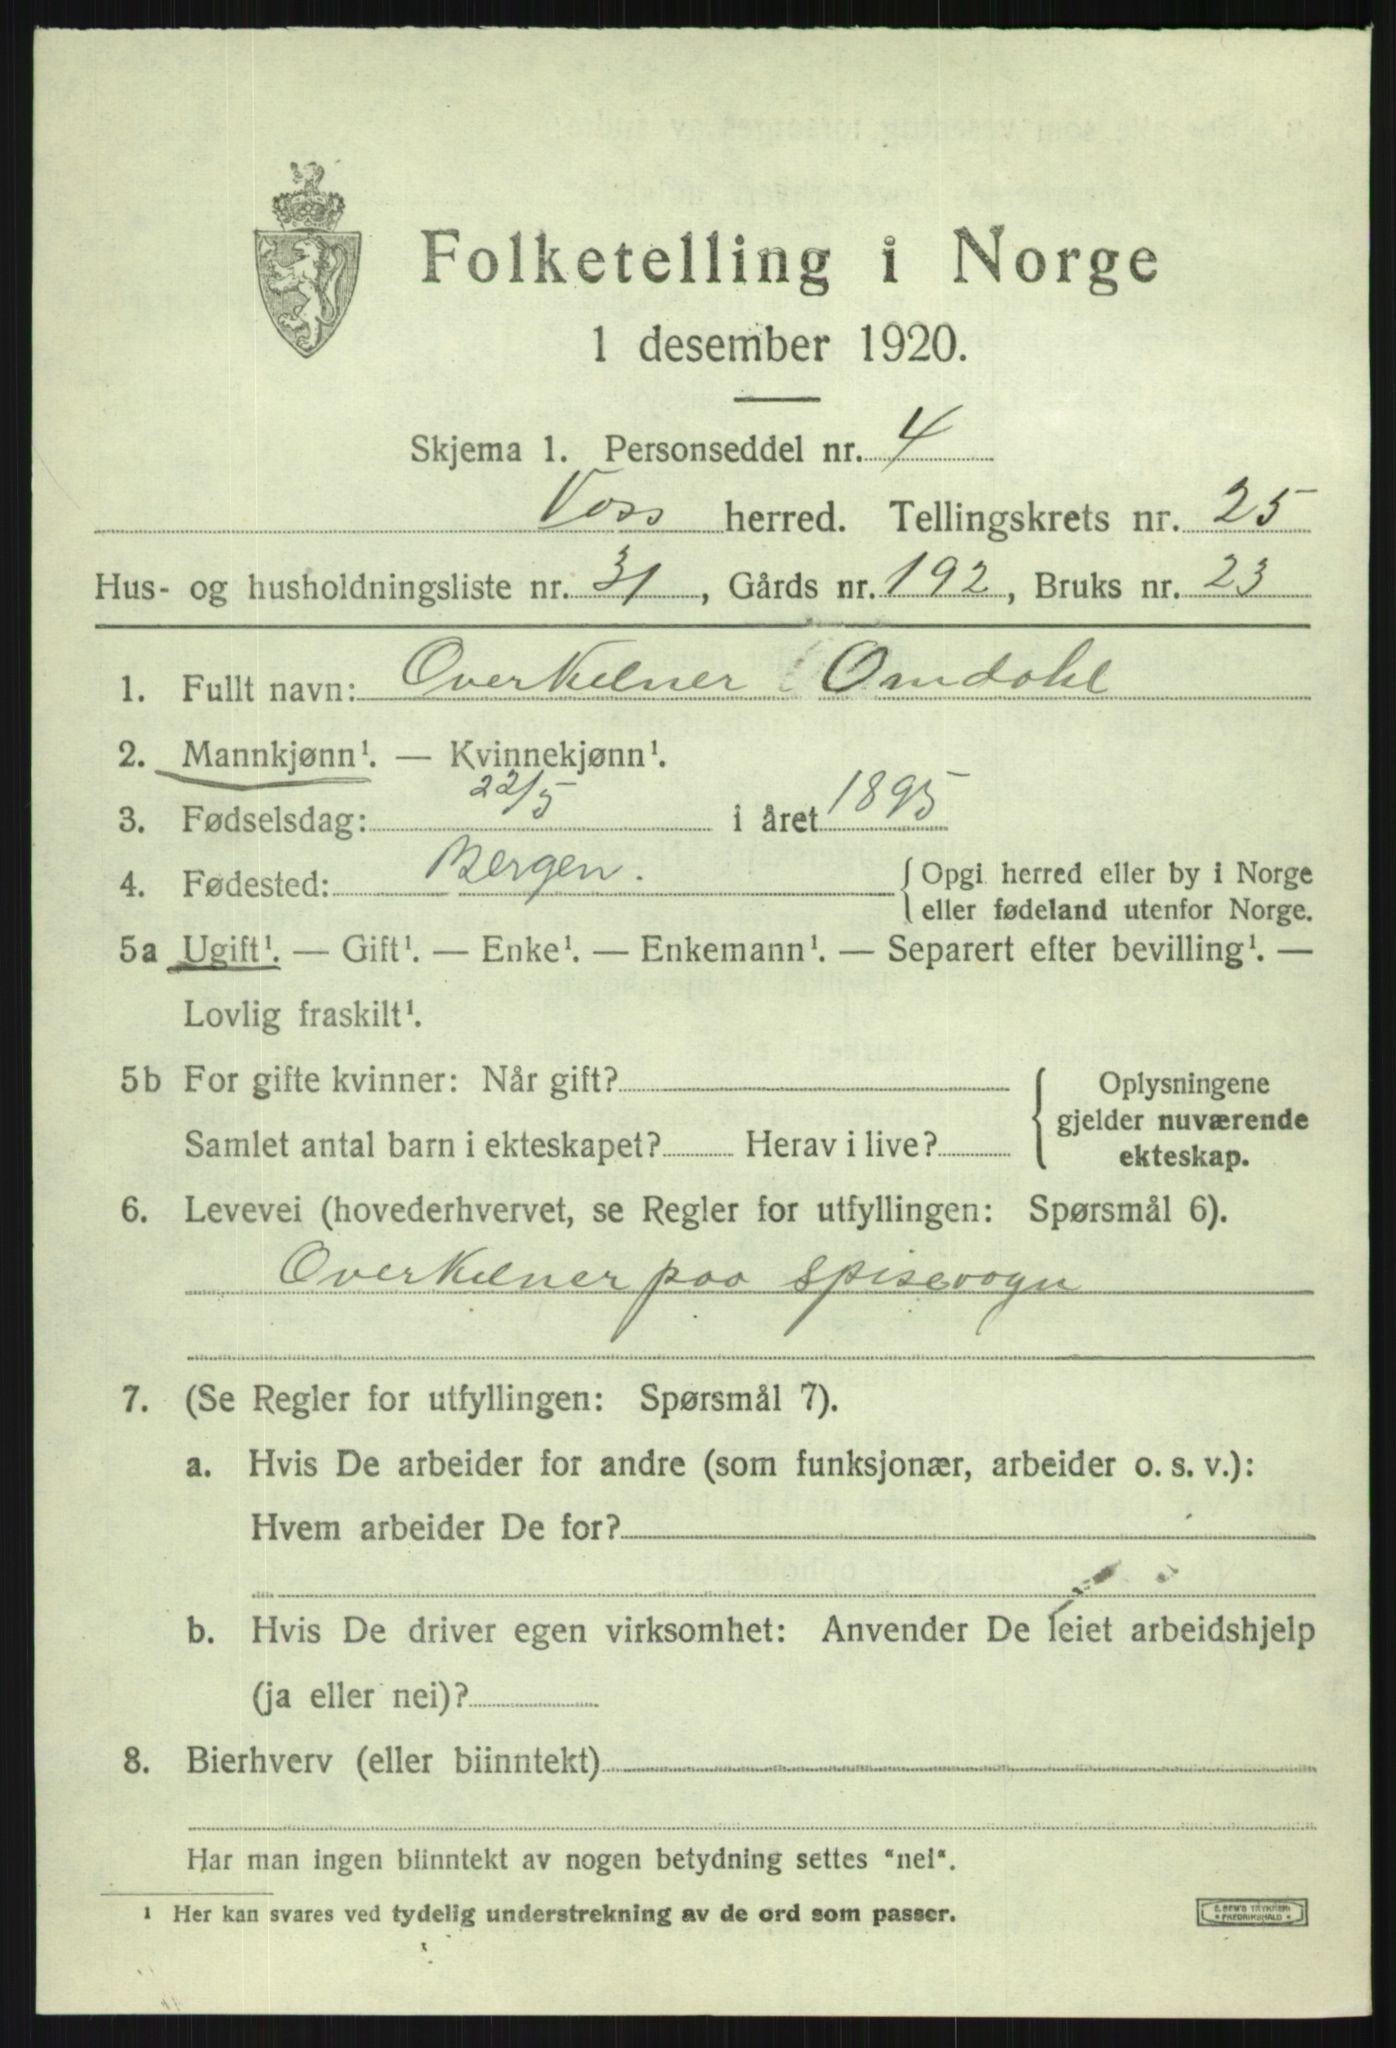 Folketelling i Norge
1 desember 1920.
Skjema 1. Personseddel nr. 4
Voss herred. Tellingskrets nr. 25
Hus- og husholdningsliste nr. 31, Gårds nr. 192, Bruks nr. 23
1. Fullt navn: Overkelner Omdahl
2. Mannkjønn¹. — Kvinnekjønn¹.
3. Fødselsdag: 22/5 i året 1895
4. Fødested: Bergen. { Opgi herred eller by i Norge
eller fødeland utenfor Norge.
5a Ugift¹. — Gift¹. — Enke¹. — Enkemann¹. — Separert efter bevilling¹. —
Lovlig fraskilt¹.
5b For gifte kvinner: Når gift?
Samlet antal barn i ekteskapet? Herav i live?
{ Oplysningene
gjelder nuværende
ekteskap.
6. Levevei (hovederhvervet, se Regler for utfyllingen: Spørsmål 6).
Overkelner paa spisevogn
7. (Se Regler for utfyllingen: Spørsmål 7).
a. Hvis De arbeider for andre (som funksjonær, arbeider o. s. v.):
Hvem arbeider De for?
b. Hvis De driver egen virksomhet: Anvender De leiet arbeidshjelp
(ja eller nei)?
8. Bierhverv (eller biinntekt)
Har man ingen biinntekt av nogen betydning settes "nei".
¹ Her kan svares ved tydelig understrekning av de ord som passer.